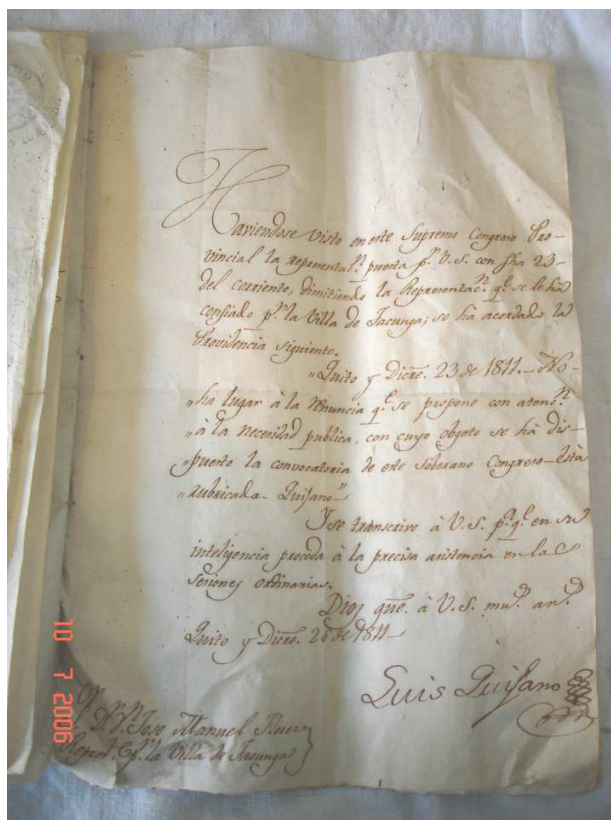 Haviendose visto en este Supremo Congreso Pro-
vincial la representac.n puesta p.r V.S. con fha 23-
del corriente, dimitiendo la Representac.n q.e se le há
confiado p.r la Villa de Tacunga; se há acordado la
Providencia siguiente.
"Quito y Dicre. 23 de 1811.- No-
"ha lugar à la renuncia q.e se propone con atenc.n
"à la necesidad publica, con cuyo objeto se há dis-
"puesto la convocatoria de este Soberano Congreso- Està
"rubricada- Quijano"
Y se transcrive à V.S. p.a q.e en su
inteligencia proceda à la precisa asistencia en las
Sesiones ordinarias.
Dios gue. à V.S. m.s an.s
Quito y Dicre. 26 de 1811-
Luis Quijano
S.or D.r D.n Jose Manuel
Repres.te p.r la Villa de Tacunga
10 7 2006